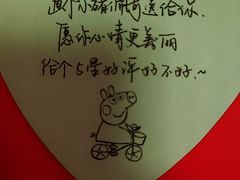 画个小猪佩奇送给你.
愿你心情更美丽
给个5星好评好不好.~